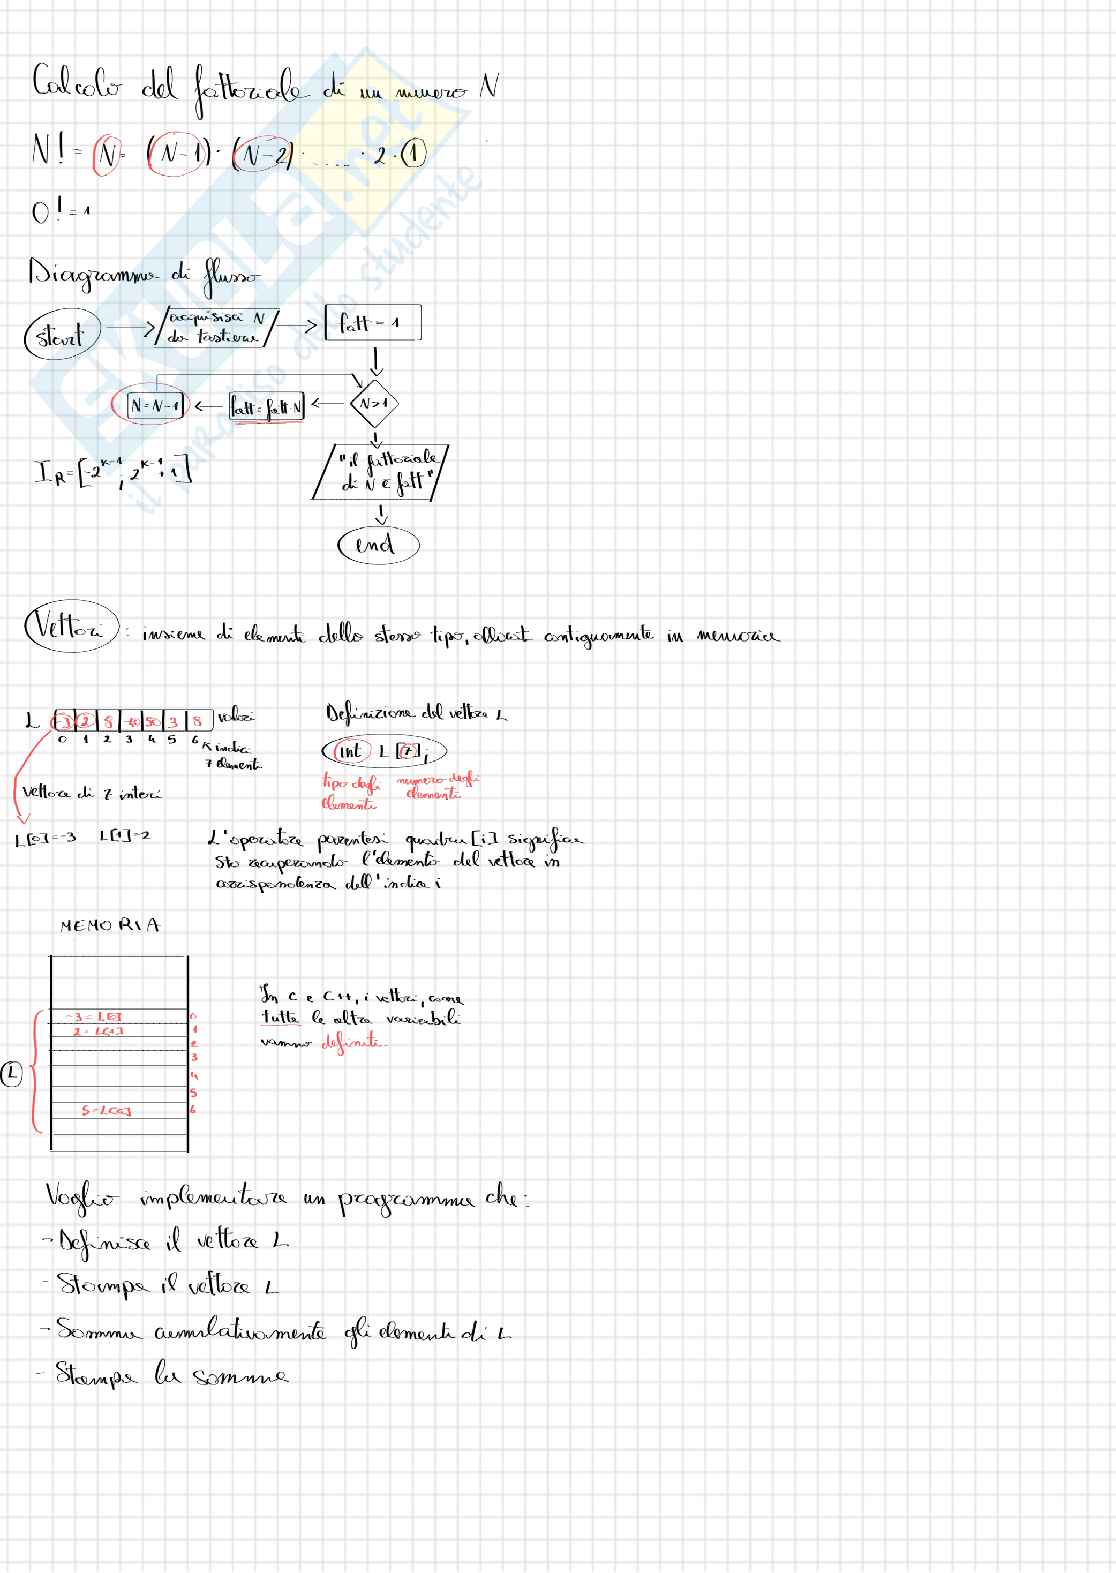 Calcolo del fattoriale di un numero N
N! = N · (N-1) · (N-2) · ..... · 2 · 1
0! = 1
Diagramma di flusso
start
acquisisci N
da tastiera
fatt = 1
N = N-1
fatt = fatt·N
N>1
I_R = [-2^{K-1}; 2^{K-1}-1]
"il fattoriale
di N è fatt"
end
Vettori: insieme di elementi dello stesso tipo, allocati contiguamente in memoria
L -3 2 5 -10 50 3 5 valori
0 1 2 3 4 5 6 indici
7 elementi
Definizione del vettore L
int L [7];
tipo degli
elementi
numero degli
elementi
vettore di 7 interi
L[0]=-3 L[1]=2
L'operatore parentesi quadra [i] significa
sto recuperando l'elemento del vettore in
corrispondenza dell'indice i
MEMORIA
-3 = L[0] 0
2 = L[1] 1
2
3
L
4
5
5 = L[6] 6
In C e C++, i vettori, come
tutte le altre variabili
vanno definiti
Voglio implementare un programma che:
- Definisce il vettore L
- Stampa il vettore L
- Somma cumulativamente gli elementi di L
- Stampa la somma
SKUOLA.net
il paradiso dello studente